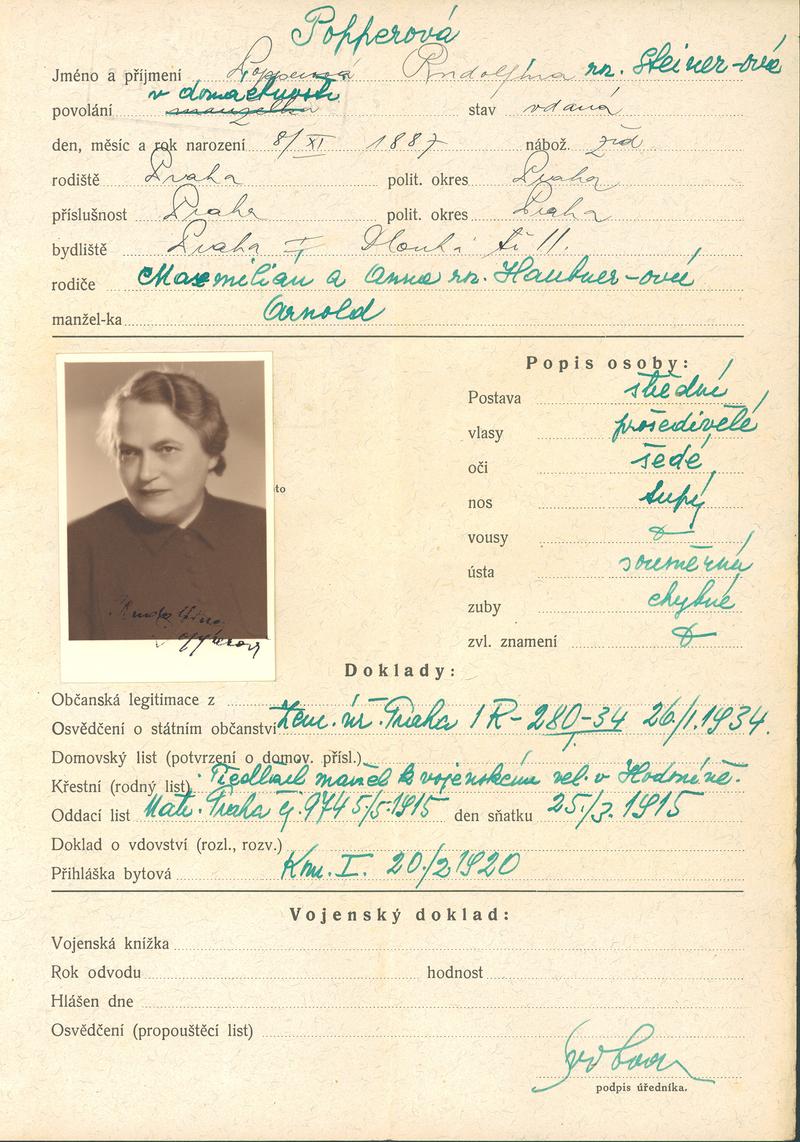 Popperová
Jméno a příjmení Popperová Rudolfina roz. Steiner-ová
v domácnosti
povolání manželka stav vdaná
den, měsíc a rok narození 8/XI 1887 nábož. žid
rodiště Praha polit. okres Praha
příslušnost Praha polit. okres Praha
bydliště Praha I Dlouhá tř 11.
rodiče Maxmilián a Anna roz. Haubner-ová
manžel-ka Arnold
Popis osoby:
Postava střední
vlasy prošedivělé
oči šedé
to
nos tupý
vousy
ústa souměrná
zuby chybné
zvl. znamení
Rudolfina
Popperová
Doklady:
Občanská legitimace z
Osvědčení o státním občanství Zem. úř. Praha 1R-280-34 26/1.1934.
Domovský list (potvrzení o domov. přísl.)
Křestní (rodný list) manžel k vojenskému vel. v Hodoníně.
Oddací list Matr. Praha čj. 974 5/5.1915 den sňatku 25./3. 1915
Doklad o vdovství (rozl., rozv.)
Přihláška bytová Km. I. 20./2 1920
Vojenský doklad:
Vojenská knížka
Rok odvodu hodnost
Hlášen dne
Osvědčení (propouštěcí list)
podpis úředníka.